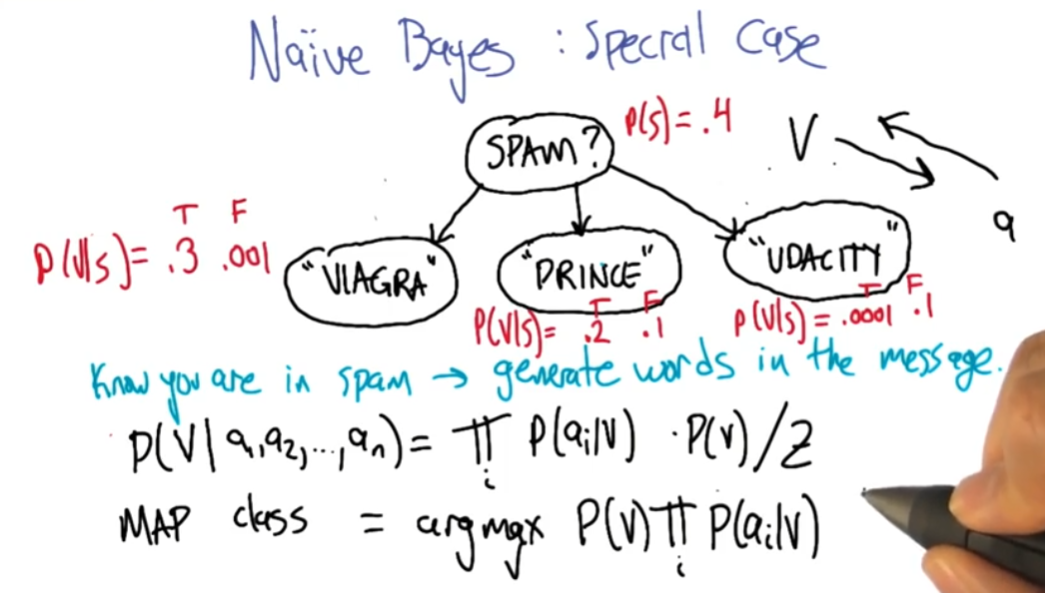 Naïve Bayes : Special Case
SPAM?
P(s) = .4
V
a
T F
P(V|s) = .3 .001
"VIAGRA"
"PRINCE"
"UDACITY"
T F
P(V|s) = .2 .1
T F
P(V|s) = .0001 .1
Know you are in spam → generate words in the message.
P(V | a₁, a₂, ..., aₙ) = ∏ᵢ P(aᵢ|V) · P(V) / Z
MAP class = argmax P(V) ∏ᵢ P(aᵢ|V)